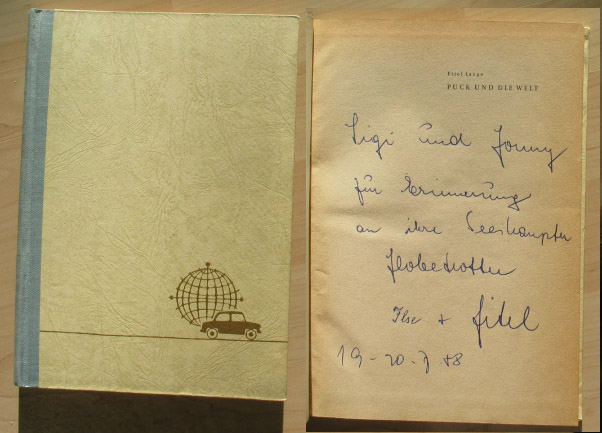 Eitel Lange
PUCK UND DIE WELT
Sigi und Jonny
für Erinnerung
an ihre Seeshaupter
Globetrotter
Ilse + Eitel
19-20-7 88